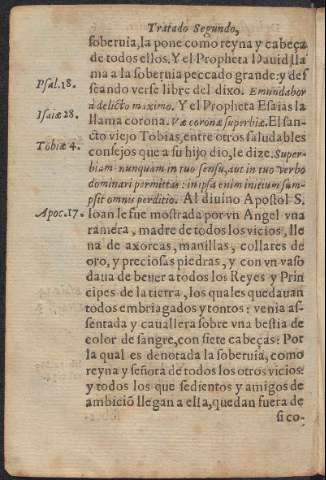 Tratado Segundo,
soberuia, la pone como reyna y cabeça
de todos ellos. Y el Propheta Dauid, lla
ma a la soberuia peccado grande: y des
Psal. 18.
seando verse libre del dixo. Emundabor
à delicto maximo. Y el Propheta Esaias la
Isaiæ 28.
llama corona. Væ coronæ superbiæ. El san-
cto viejo Tobias, entre otros saludables
Tobiæ 4.
consejos que a su hijo dio, le dize. Super-
biam nunquam in tuo sensu, aut in tuo verbo
dominari permittas: in ipsa enim initium sum-
psit omnis perditio. Al diuino Apostol S.
Apoc. 17.
Ioan le fue mostrada por vn Angel vna
ramera, madre de todos los vicios, lle
na de axorcas, manillas, collares de
oro, y preciosas piedras, y con vn vaso
daua de beuer a todos los Reyes y Prin
cipes de la tierra, los quales quedauan
todos embriagados y tontos: venia as-
sentada y cauallera sobre vna bestia de
color de sangre, con siete cabeças: Por
la qual es denotada la soberuia, como
reyna y señora de todos los otros vicios:
y todos los que sedientos y amigos de
ambiciõ llegan a ella, quedan fuera de
si co-